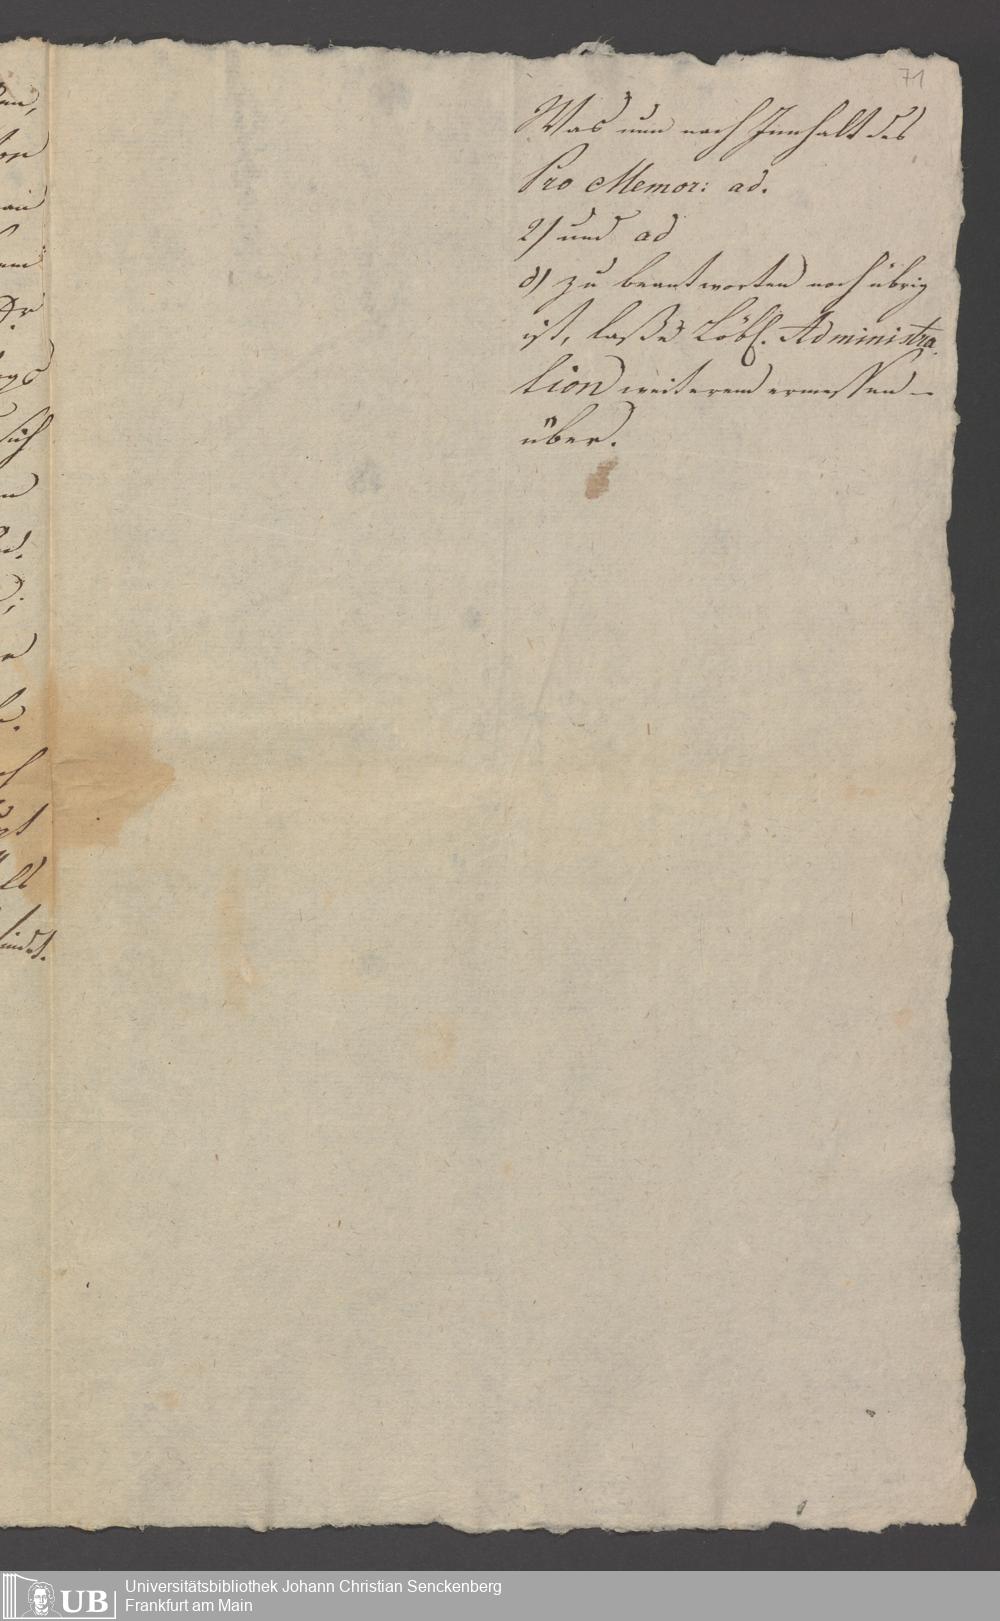 71
Was nun nach Innhalt des
Pro Memor: ad.
2) und ad
3) zu beantworten noch übrig
ist, laße Löbl. Administra
tion weiterem ermessen –
über.
UB
Universitätsbibliothek Johann Christian Senckenberg
Frankfurt am Main